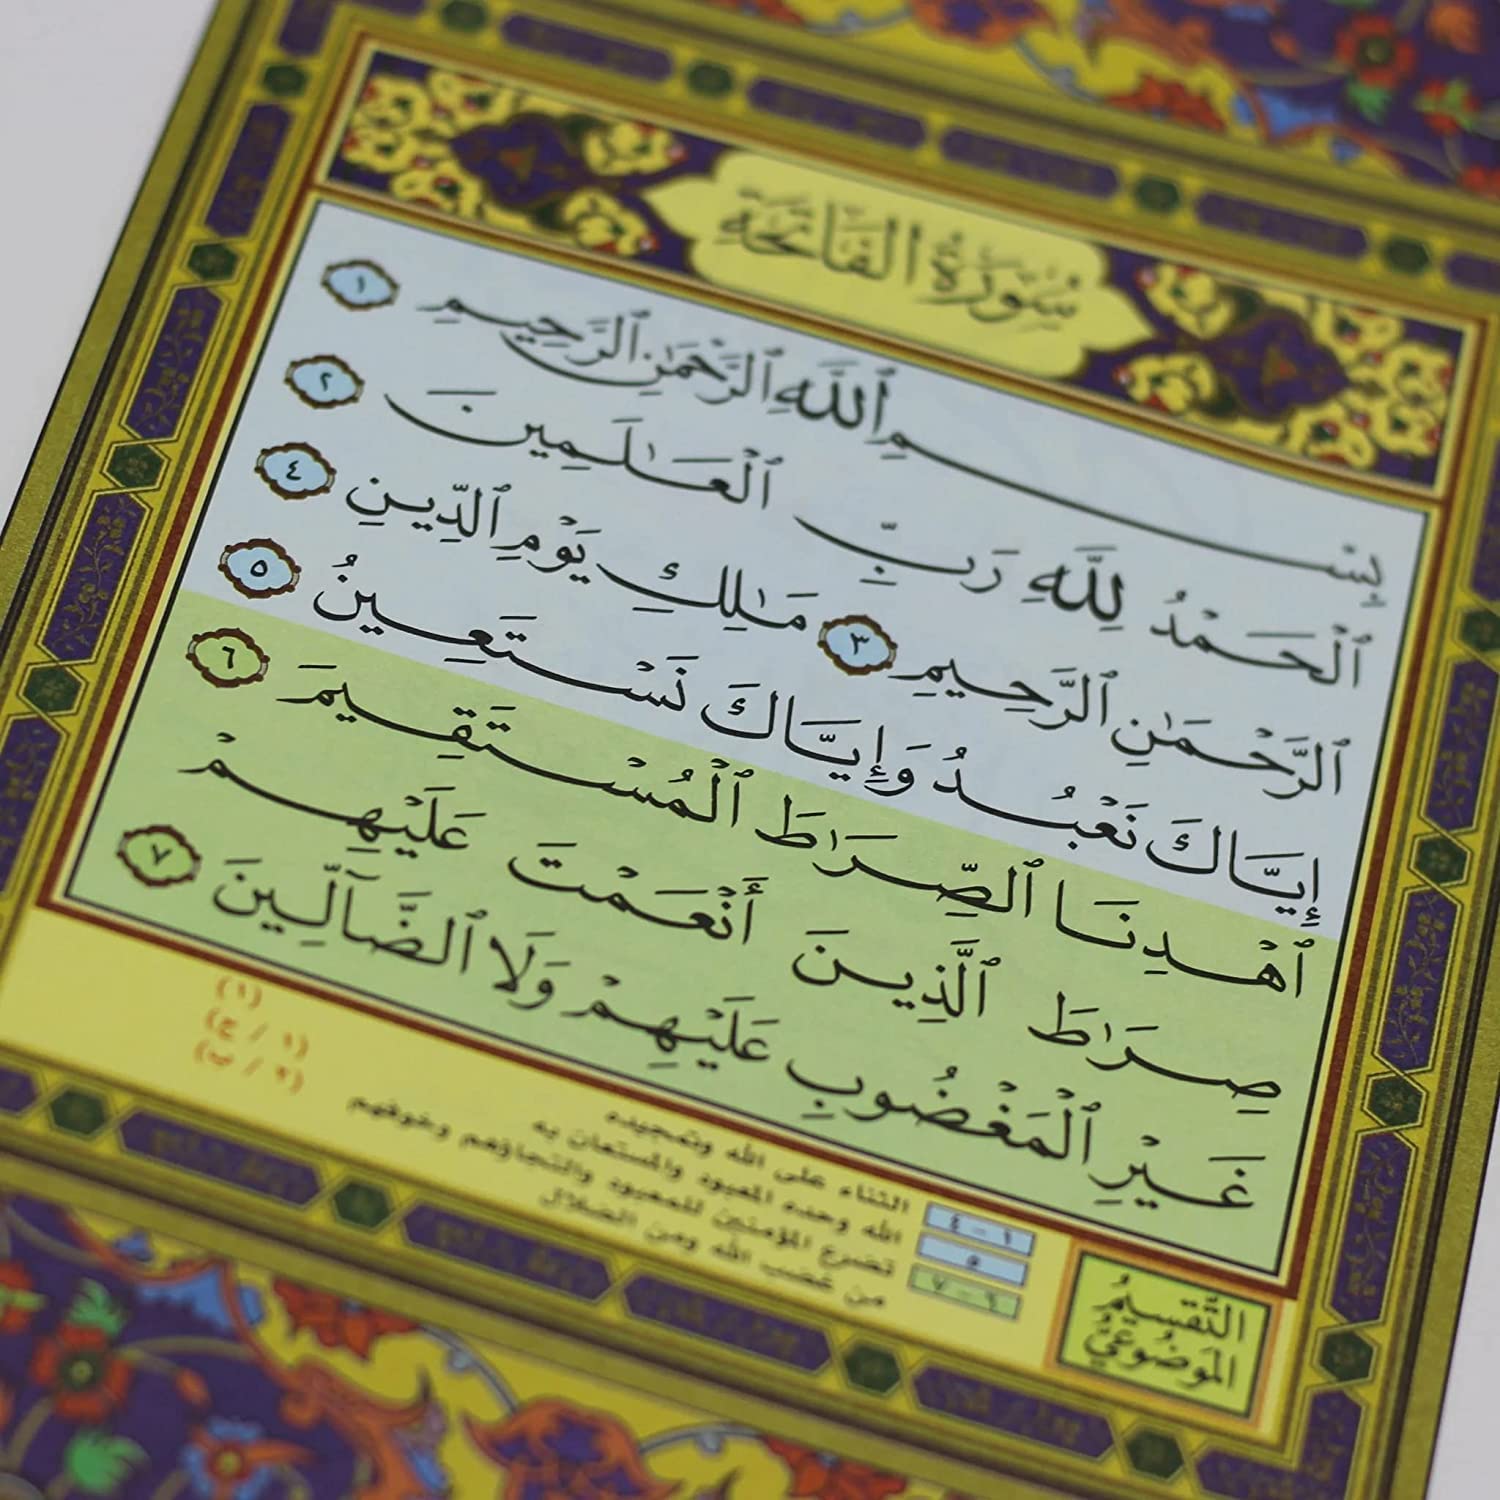 سُورَةُ الفَاتِحَةِ
بِسْمِ ٱللَّهِ ٱلرَّحْمَٰنِ ٱلرَّحِيمِ ١
ٱلْحَمْدُ لِلَّهِ رَبِّ ٱلْعَٰلَمِينَ ٢
ٱلرَّحْمَٰنِ ٱلرَّحِيمِ ٣ مَٰلِكِ يَوْمِ ٱلدِّينِ ٤
إِيَّاكَ نَعْبُدُ وَإِيَّاكَ نَسْتَعِينُ ٥
ٱهْدِنَا ٱلصِّرَٰطَ ٱلْمُسْتَقِيمَ ٦
صِرَٰطَ ٱلَّذِينَ أَنْعَمْتَ عَلَيْهِمْ
غَيْرِ ٱلْمَغْضُوبِ عَلَيْهِمْ وَلَا ٱلضَّآلِّينَ ٧
التَّقسِيمُ المَوضُوعِيُّ
١ - ٤ الثناء على الله وتمجيده (١)
٥ الله وحده المعبود والمستعان به (١ / ج)
٦ - ٧ تضرع المؤمنين للمعبود والتجاؤهم وخوفهم (٢ / ب)
من غضب الله ومن الضلال